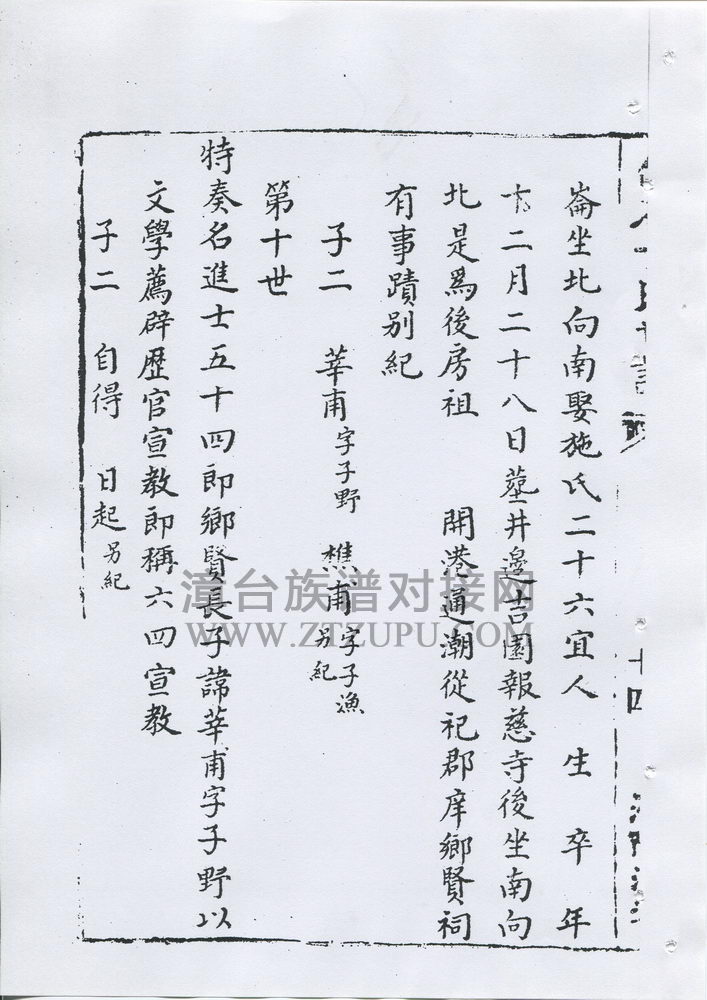 崙坐北向南娶施氏二十六宜人 生 卒 年
十二月二十八日塟井邊吉園報慈寺後坐南向
北是爲後房祖 開港通潮從祀郡庠鄉賢祠
有事蹟别紀
子二 莘甫字子野 樵甫字子漁 另紀
第十世
特奏名進士五十四郎鄉賢長子諱莘甫字子野以
文學薦辟歷官宣教郎稱六四宣教
子二 自得 日起另紀
十四
漳台族谱对接网
WWW.ZTZUPU.COM